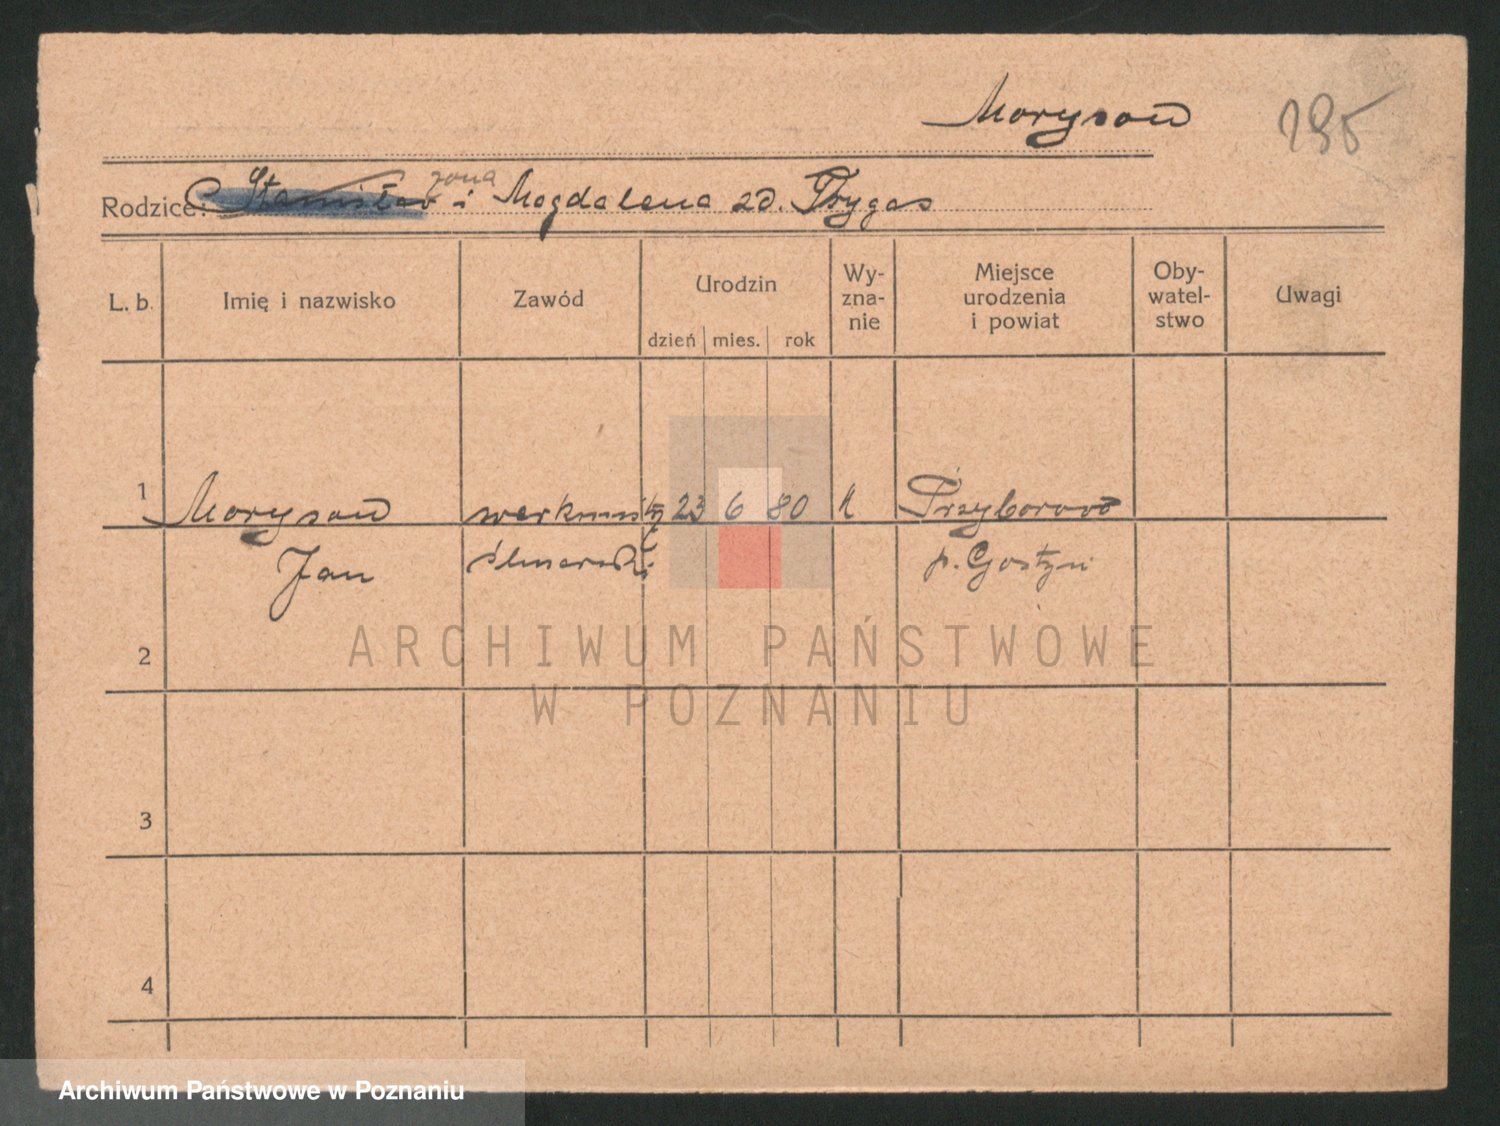 Moryson 295
żona
Rodzice: Stanisław i Magdalena zd. Frygas
L. b. Imię i nazwisko Zawód Urodzin dzień mies. rok Wy-zna-nie Miejsce urodzenia i powiat Oby-watel-stwo Uwagi
1 Moryson 23 6 80 k Przyborowo
Jan ślusarski p. Gostyń
2
ARCHIWUM PAŃSTWOWE
W POZNANIU
3
4
Archiwum Państwowe w Poznaniu